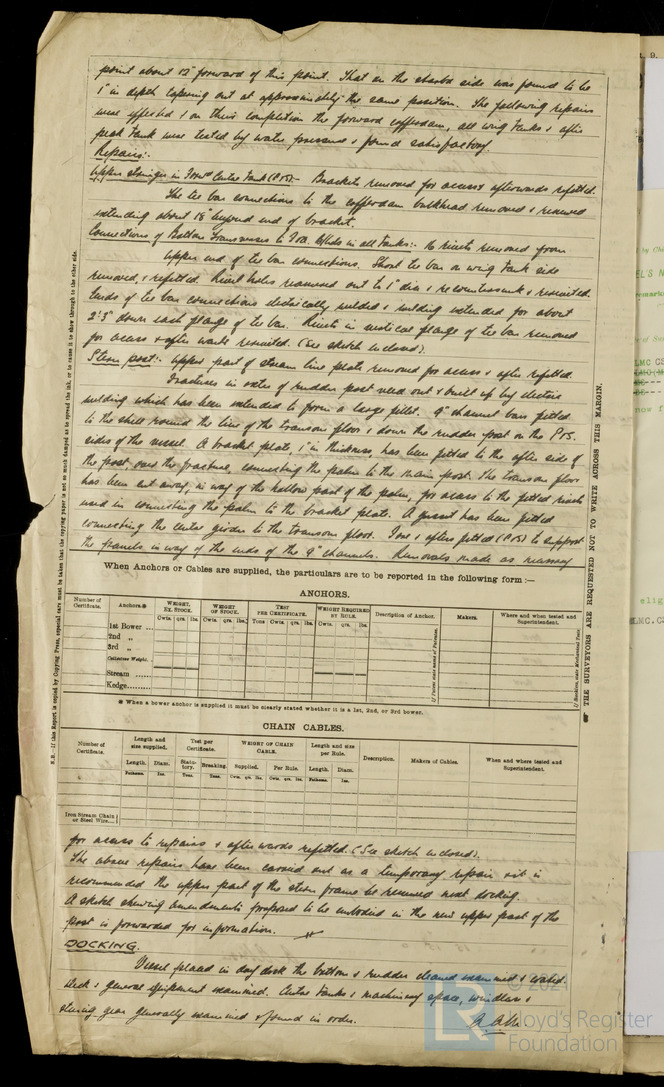 point about 12" forward of this point. That on the starbd side was found to be
1" in depth tapering out at approximately the same position. The following repairs
were effected & on their completion the forward cofferdam, all wing tanks & after
peak tank were tested by water pressure & found satisfactory
Repairs:-
Upper stringer in Forwd Centre Tank (P&S):- Brackets removed for access & afterwards refitted.
The tee bar connections to the cofferdam bulkhead removed & renewed
extending about 18" beyond end of bracket.
Connections of Bottom Transverses to Fore Blkhds in all Tanks:- 16 rivets removed from
upper end of tee bar connections. Short tee bar on wing tank side
removed, & refitted. Rivet holes reamered out to 1" dia & recountersunk & reriveted.
Ends of tee bar connections electrically welded & welding extended for about
2'3" down each flange of tee bar. Rivets in vertical flange of tee bar removed
for access & after wards reriveted. (See sketch inclosed).
Stern post:- Upper part of stream line plate removed for access & after refitted.
Fractures in way of rudder post veed out & built up by electric
welding which has been extended to form a large fillet. 9" channel bars fitted
to the shell round the line of the transom floor & down the rudder post on the P&S.
sides of the vessel. A bracket plate, 1" in thickness, has been fitted to the after side of
the post, over the fracture, connecting the palm to the main post. The transom floor
has been cut away, in way of the hollow part of the palm, for access to the fitted rivets
used in connecting the palm to the bracket plate. A gusset has been fitted
connecting the centre girder to the transom floor. Fore & afters fitted (P&S) to support
the panels in way of the ends of the 9" channels. Removals made as necessary
When Anchors or Cables are supplied, the particulars are to be reported in the following form :—
ANCHORS.
Number of Certificate.
Anchors.*
WEIGHT, EX. STOCK.
WEIGHT OF STOCK.
TEST PER CERTIFICATE.
WEIGHT REQUIRED BY RULE.
Description of Anchor.
Makers.
Where and when tested and Superintendent.
Cwts. qrs. lbs.
Cwts. qrs. lbs.
Tons Cwts. qrs. lbs.
Cwts. qrs. lbs.
1st Bower ...
2nd „
3rd „
Collective Weight.
Stream ......
Kedge......
* When a bower anchor is supplied it must be clearly stated whether it is a 1st, 2nd, or 3rd bower.
CHAIN CABLES.
Number of Certificate.
Length and size supplied.
Test per Certificate.
WEIGHT OF CHAIN CABLE.
Length and size per Rule.
Description.
Makers of Cables.
When and where tested and Superintendent.
Length.
Diam.
Statutory.
Breaking.
Supplied.
Per Rule.
Length.
Diam.
Fathoms.
Ins.
Tons.
Tons.
Cwts. qrs. lbs.
Cwts. qrs. lbs.
Fathoms.
Ins.
Iron Stream Chain or Steel Wire...
for access to repairs & after wards refitted. (See sketch inclosed).
The above repairs have been carried out as a temporary repair & it is
recommended the upper part of the stern frame be renewed next docking.
A sketch shewing amendments proposed to be embodied in the new upper part of the
post is forwarded for information.
DOCKING.
Vessel placed in dry dock the bottom & rudder cleaned examined & coated.
Deck & general equipment examined. Centre tanks & machinery space, windlass &
steering gear generally examined & found in order.
N.B.—If this Report is copied by Copying Press, especial care must be taken that the copying paper is not so much damped as to spread the ink, or to cause it to show through to the other side.
THE SURVEYORS ARE REQUESTED NOT TO WRITE ACROSS THIS MARGIN.
© 2021
LR
Lloyd's Register
Foundation